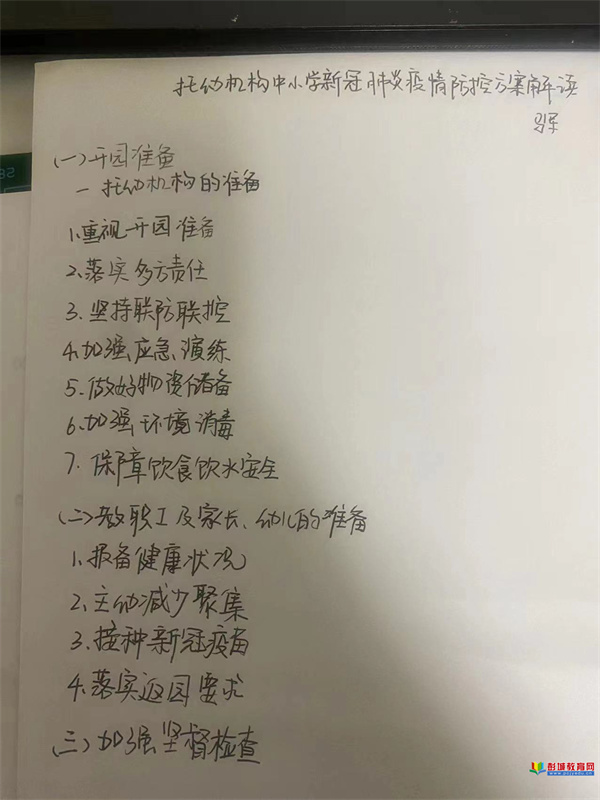 托幼机构中小学新冠肺炎疫情防控方案解读
(一)开园准备
一 托幼机构的准备
1.重视开园准备
2.落实多方责任
3.坚持联防联控
4.加强应急演练
5.做好物资储备
6.加强环境消毒
7.保障饮食饮水安全
(二)教职工及家长、幼儿的准备
1.报备健康状况
2.主动减少聚集
3.接种新冠疫苗
4.落实返园要求
(三)加强坚督检查
彭城教育网